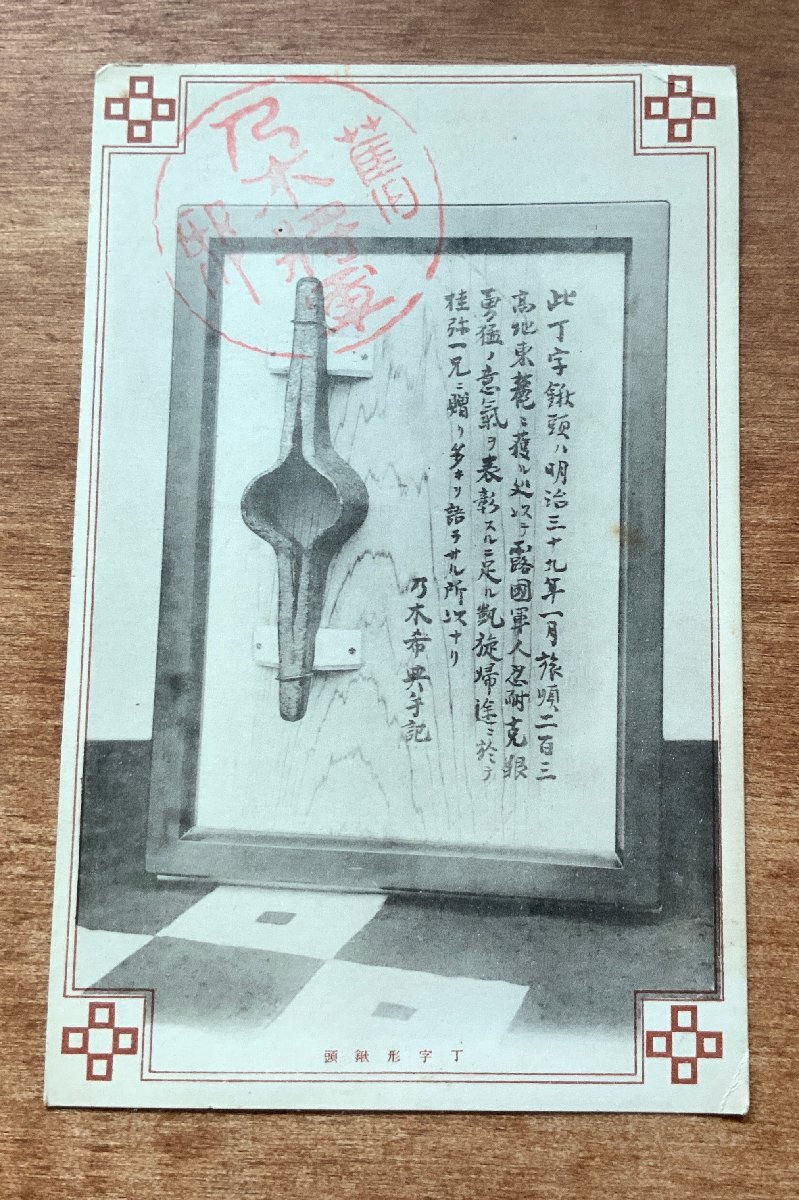 舊
乃木将軍
邸
此丁字鍬頭ハ明治三十九年一月旅順二百三
高地東麓ニ獲ル処以テ露國軍人忍耐克艱
勇猛ノ意氣ヲ表彰スルニ足ル凱旋歸途ニ於テ
桂弥一兄ニ贈リ多キヲ語ラサル所以ナリ
乃木希典手記
丁字形鍬頭